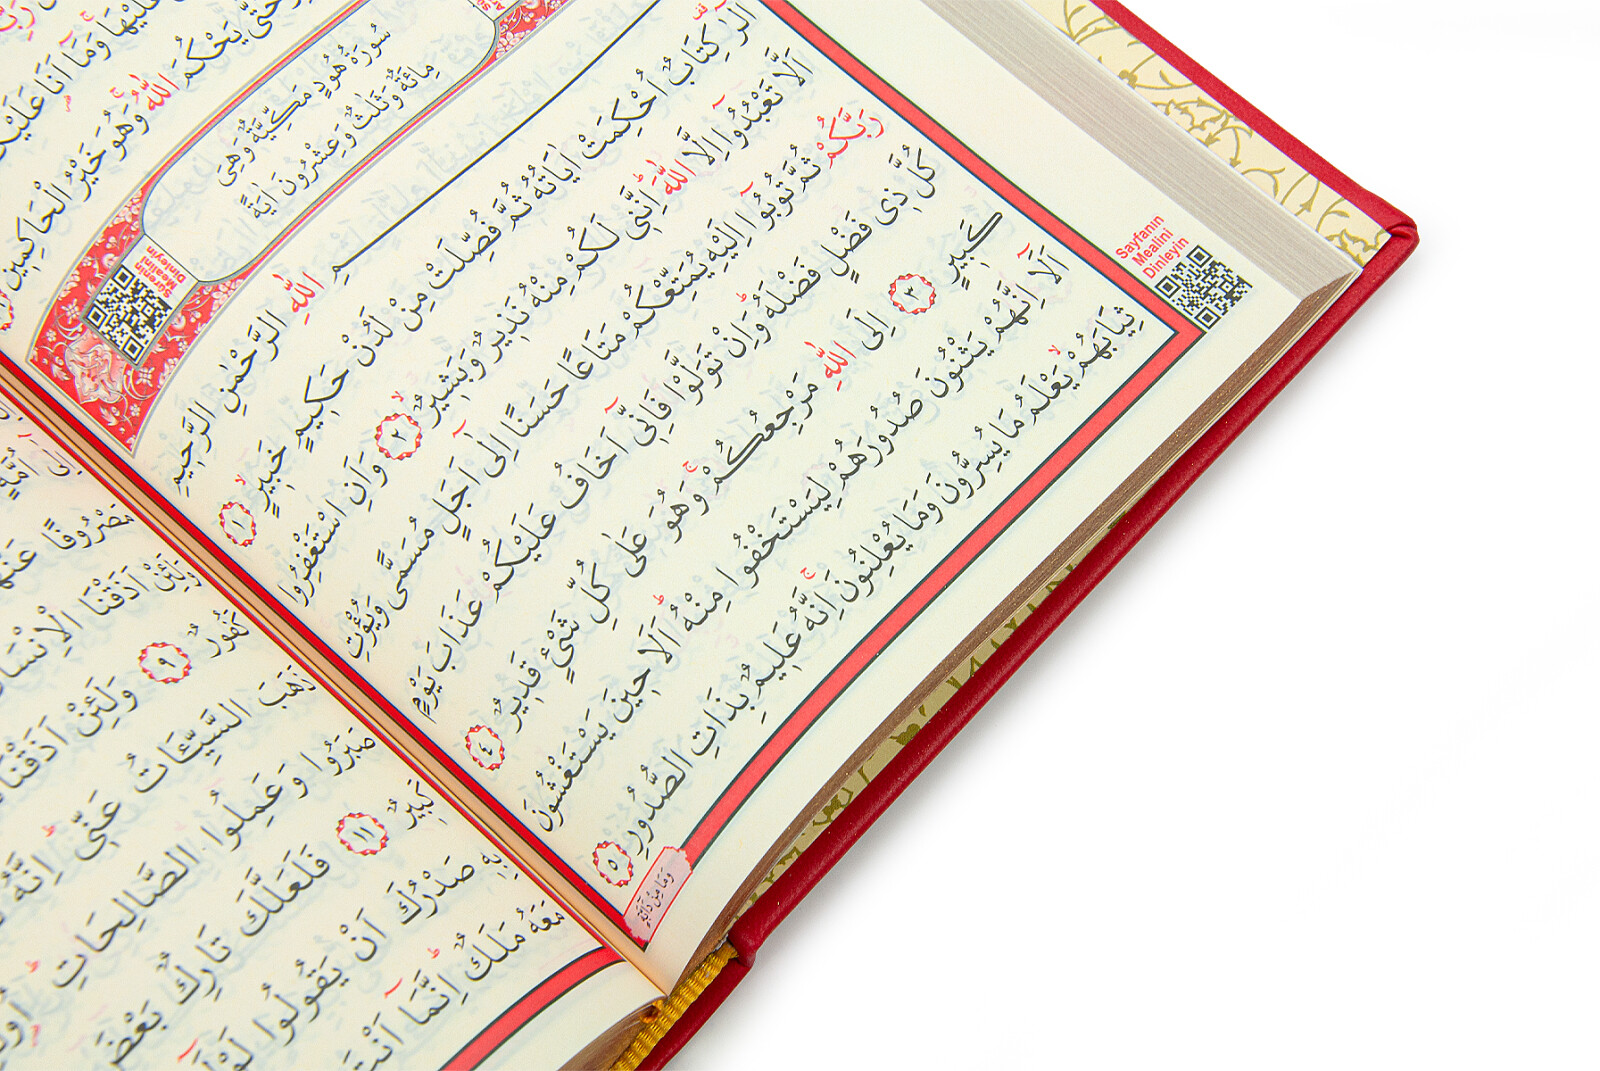 حَتّٰى يَحْكُمَ اللّٰهُ وَهُوَ خَيْرُ الْحَاكِمِينَ
سُورَةُ هُودٍ مَكِّيَّةٌ وَهِىَ
مِائَةٌ وَثَلٰثٌ وَعِشْرُونَ اٰيَةً
Sûrenin
Mealini
Dinleyin
بِسْمِ اللّٰهِ الرَّحْمٰنِ الرَّحِيمِ
الٓرٰ كِتَابٌ اُحْكِمَتْ اٰيَاتُهُ ثُمَّ فُصِّلَتْ مِنْ لَدُنْ حَكِيمٍ خَبِيرٍ ﴿١﴾
اَلَّا تَعْبُدُٓوا اِلَّا اللّٰهَ اِنَّنِى لَكُمْ مِنْهُ نَذِيرٌ وَبَشِيرٌ ﴿٢﴾ وَاَنِ اسْتَغْفِرُوا
رَبَّكُمْ ثُمَّ تُوبُٓوا اِلَيْهِ يُمَتِّعْكُمْ مَتَاعًا حَسَنًا اِلٰٓى اَجَلٍ مُسَمًّى وَيُؤْتِ
كُلَّ ذِى فَضْلٍ فَضْلَهُ وَاِنْ تَوَلَّوْا فَاِنِّٓى اَخَافُ عَلَيْكُمْ عَذَابَ يَوْمٍ
كَبِيرٍ ﴿٣﴾ اِلَى اللّٰهِ مَرْجِعُكُمْ وَهُوَ عَلٰى كُلِّ شَىْءٍ قَدِيرٌ ﴿٤﴾
اَلَٓا اِنَّهُمْ يَثْنُونَ صُدُورَهُمْ لِيَسْتَخْفُوا مِنْهُ اَلَا حِينَ يَسْتَغْشُونَ
ثِيَابَهُمْ يَعْلَمُ مَا يُسِرُّونَ وَمَا يُعْلِنُونَ اِنَّهُ عَلِيمٌ بِذَاتِ الصُّدُورِ ﴿٥﴾
وَمَا مِنْ دَٓابَّةٍ
Sayfanın
Mealini
Dinleyin
مَصْرُوفًا عَنْهُمْ
وَلَئِنْ اَذَقْنَا الْاِنْسَانَ
كَفُورٌ ﴿٩﴾ وَلَئِنْ اَذَقْنَاهُ
ذَهَبَ السَّيِّـَٔاتُ عَنِّى اِنَّهُ
صَبَرُوا وَعَمِلُوا الصَّالِحَاتِ
كَبِيرٌ ﴿١١﴾ فَلَعَلَّكَ تَارِكٌ بَعْضَ
بِهِ صَدْرُكَ اَنْ يَقُولُوا لَوْلَٓا
مَعَهُ مَلَكٌ اِنَّمَٓا اَنْتَ